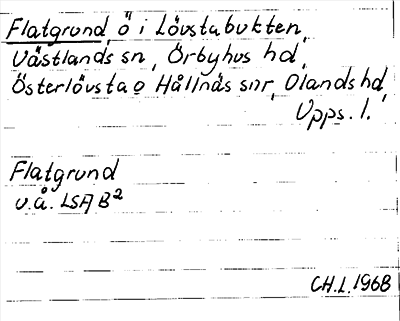 Flatgrund, ö i Lövstabukten,
Västlands sn, Örbyhus hd,
Österlövsta o Hållnäs snr, Olands hd,
Upps. l.
Flatgrund
u.å. LSA B²
CH.L. 1968